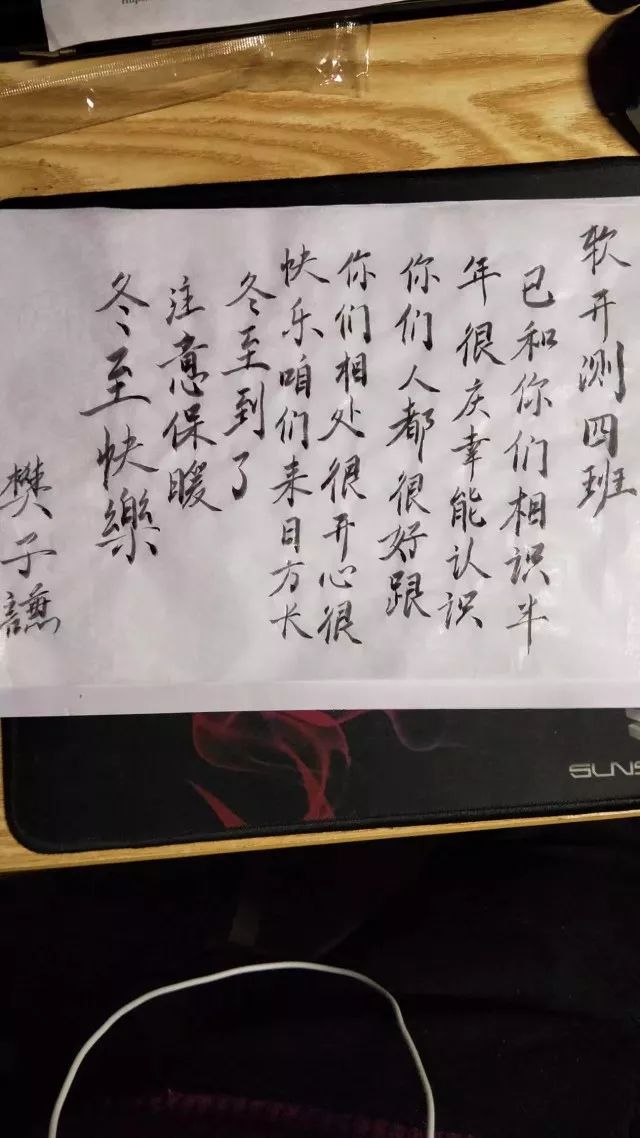 软开测四班
已和你们相识半
年很庆幸能认识
你们人都很好跟
你们相处很开心很
快乐咱们来日方长
冬至到了
注意保暖
冬至快樂
樊子謙
SUNS